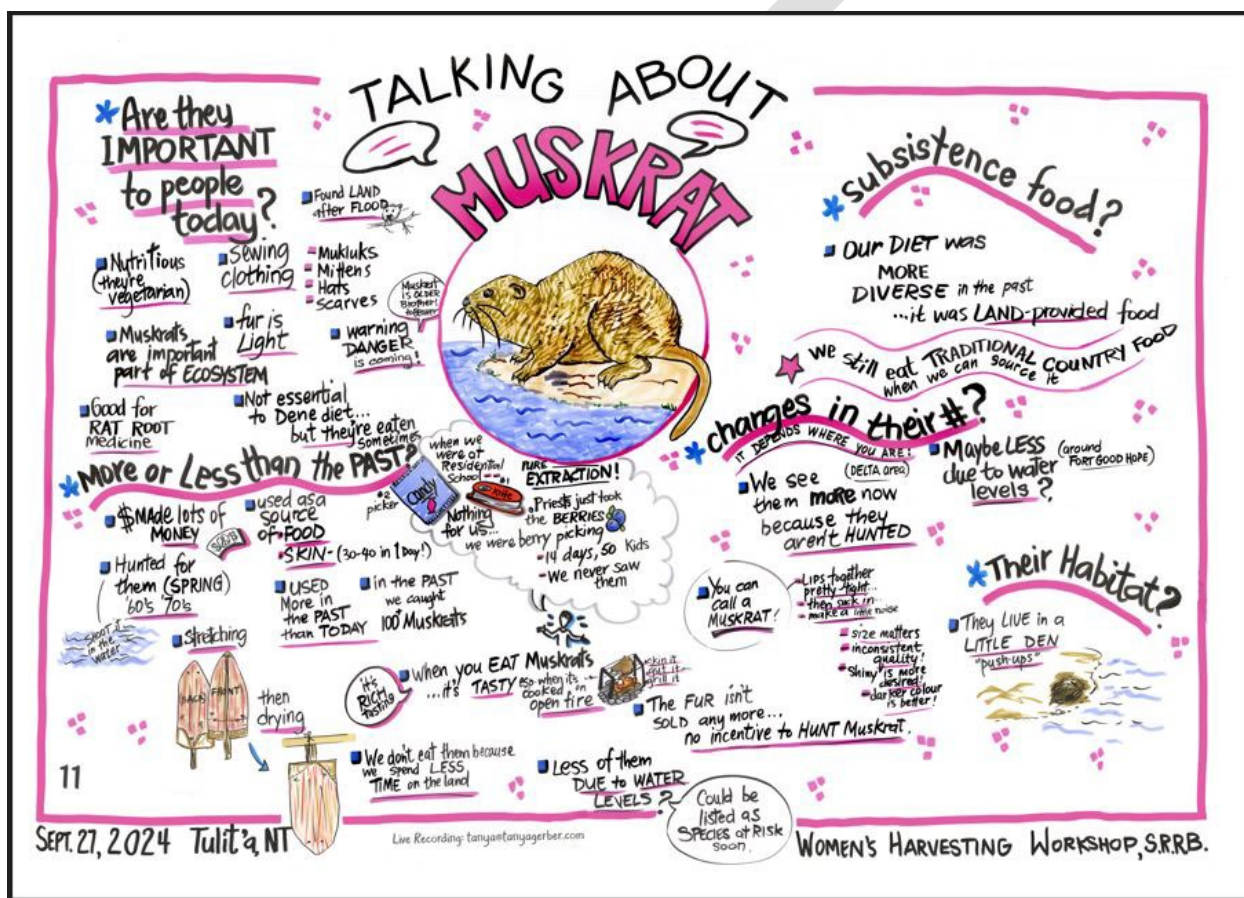 TALKING ABOUT
MUSKRAT
* Are they
IMPORTANT
to people
today?
Nutritious
(they're
vegetarian)
Sewing
clothing
Found LAND
after FLOOD
Mukluks
Mittens
Hats
Scarves
Muskrat
is OLDER
Brother!
Muskrats
are important
part of ECOSYSTEM
fur is
Light
warning
DANGER
is coming!
Good for
RAT ROOT
medicine
Not essential
to Dene diet...
but they're eaten
sometimes
* More or Less than the PAST?
$ MAde lots of
MONEY
used as a
source
of FOOD
SKIN- (30-40 in 1 Day!)
Hunted for
them (SPRING)
'60's '70's
SHOOT it
in the
water
USED
More in
the PAST
than TODAY
in the PAST
we caught
100+ Muskrats
Stretching
BACK
FRONT
then
drying
when we
were at
Residential
School
#1
#2
picker
candy
knife
Nothing
for us...
we were berry picking
PURE
EXTRACTION!
Prie$t$ just took
the BERRIES
-14 days, 50 kids
-We never saw
them
it's
RICH
tasting
When you EAT Muskrats
...it's TASTY esp. when it's
cooked on
open fire
skin it
gut it
grill it
We don't eat them because
we spend LESS
TIME on the land
Less of them
DUE to WATER
LEVELS?
Could be
listed as
SPECIES at RISK
soon.
* Subsistence food?
Our DIET was
MORE
DIVERSE in the past
...it was LAND-provided food
We still eat TRADITIONAL COUNTRY FOOD
when we can source it
* changes in their #?
IT DEPENDS WHERE YOU ARE:
We see
them more now
because they
aren't HUNTED
(DELTA area)
Maybe LESS
due to water
levels?
(around
FORT GOOD HOPE)
You can
call a
MUSKRAT!
LIPS together
pretty tight...
then suck in...
make a little noise
size matters
inconsistent
quality!
Shiny is more
desired!
darker colour
is better!
The FUR isn't
SOLD any more...
no incentive to HUNT Muskrat.
* Their Habitat?
They LIVE in a
LITTLE DEN
"push-ups"
11
SEPT. 27, 2024 Tulit'a, NT
Live Recording: tanya@tanyagerber.com
WOMEN'S HARVESTING WORKSHOP, S.R.R.B.